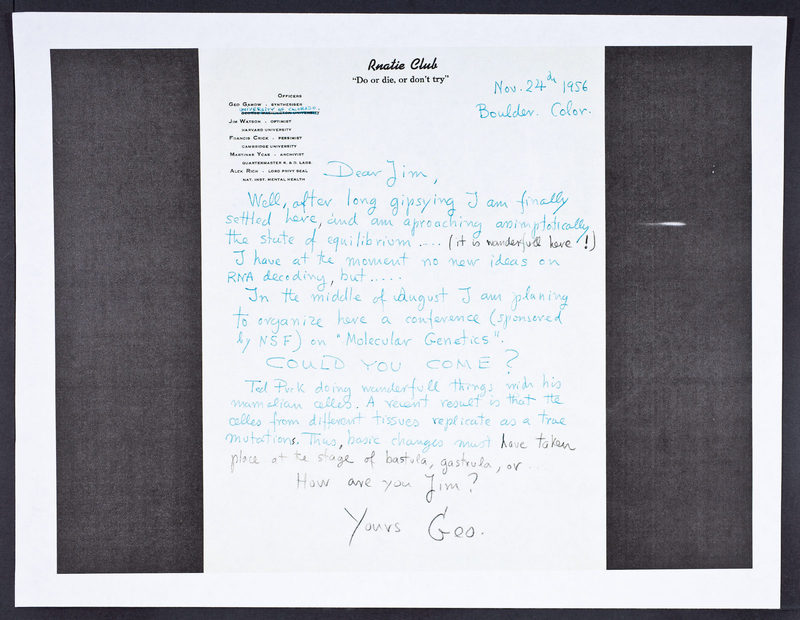 Rnatie Club
"Do or die, or don't try"
Nov. 24th 1956
Boulder. Color.
Officers
Geo Gamow - Synthesiser
UNIVERSITY OF COLORADO.
George Washington University
Jim Watson - Optimist
Harvard University
Francis Crick - Pessimist
Cambridge University
Martinas Ycas - Archivist
Quartermaster R. & D. Labs.
Alex Rich - Lord Privy Seal
Nat. Inst. Mental Health
Dear Jim,
Well, after long gipsying I am finally
settled here, and am aproaching assimptotically
the state of equilibrium .... (it is wanderfull here!)
I have at the moment no new ideas on
RNA decoding, but .....
In the middle of August I am planing
to organize here a conference (sponsored
by NSF) on "Molecular Genetics".
COULD YOU COME?
Ted Puck doing wanderfull things with his
mamalian celles. A recent result is that the
celles from different tissues replicate as a true
mutations. Thus, basic changes must have taken
place at the stage of bastula, gastrula, or ...
How are you Jim?
Yours Geo.